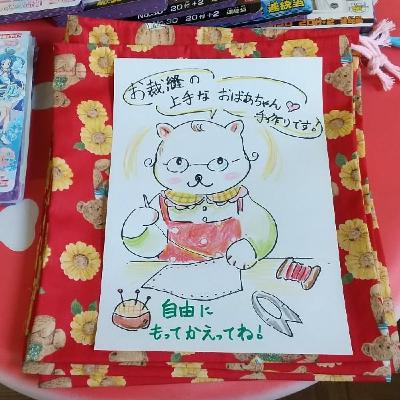 No.30 20付+2 連続当
20付+2 連続当
お裁縫の
上手な おばあちゃん♡
手作りです♪
自由に
もってかえってね!